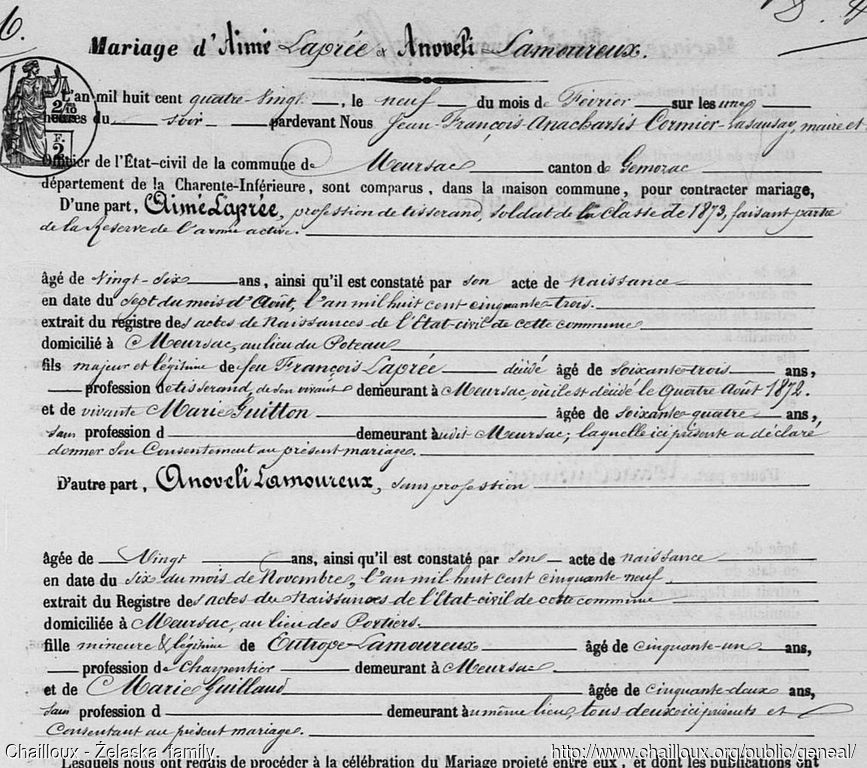 6.
Mariage d'Aimé Laprée & Anoveli Lamoureux.
L'an mil huit cent quatre-vingt, le neuf du mois de Février sur les une
heures du soir pardevant Nous Jean-François-Anacharsis Cormier-Lasausay, maire et
Officier de l'État-civil de la commune de Meursac canton de Gemozac
département de la Charente-Inférieure, sont comparus, dans la maison commune, pour contracter mariage,
D'une part, Aimé Laprée, profession de tisserand, soldat de la classe de 1873, faisant partie
de la Réserve de l'armée active.
âgé de Vingt-Six ans, ainsi qu'il est constaté par son acte de naissance
en date du sept du mois d'Août, l'an mil huit cent cinquante-trois.
extrait du registre des actes de Naissances de l'État civil de cette commune
domicilié à Meursac, au lieu du Poteau
fils majeur et légitime de feu François Laprée décédé âgé de Soixante-trois ans,
profession de tisserand, de son vivant demeurant à Meursac, où il est décédé le Quatre Août 1872.
et de vivante Marie Guitton âgée de Soixante-quatre ans,
sans profession d demeurant audit Meursac; laquelle ici présente a déclaré
donner son Consentement au présent mariage.
D'autre part, Anoveli Lamoureux, sans profession
âgée de Vingt ans, ainsi qu'il est constaté par son acte de naissance
en date du six du mois de Novembre, l'an mil huit cent cinquante-neuf.
extrait du Registre des actes de Naissances de l'État civil de cette commune
domiciliée à Meursac, au lieu des Portiers.
fille mineure & légitime de Eutrope Lamoureux âgé de cinquante-un ans,
profession de Charpentier demeurant à Meursac
et de Marie Guillaud âgée de cinquante-deux ans,
sans profession d demeurant au même lieu, tous deux ici présents et
Consentant au présent mariage.
Chailloux - Želaska family
http://www.chailloux.org/public/geneal/
Lesquels nous ont requis de procéder à la célébration du Mariage projeté entre eux, et dont les publications ont